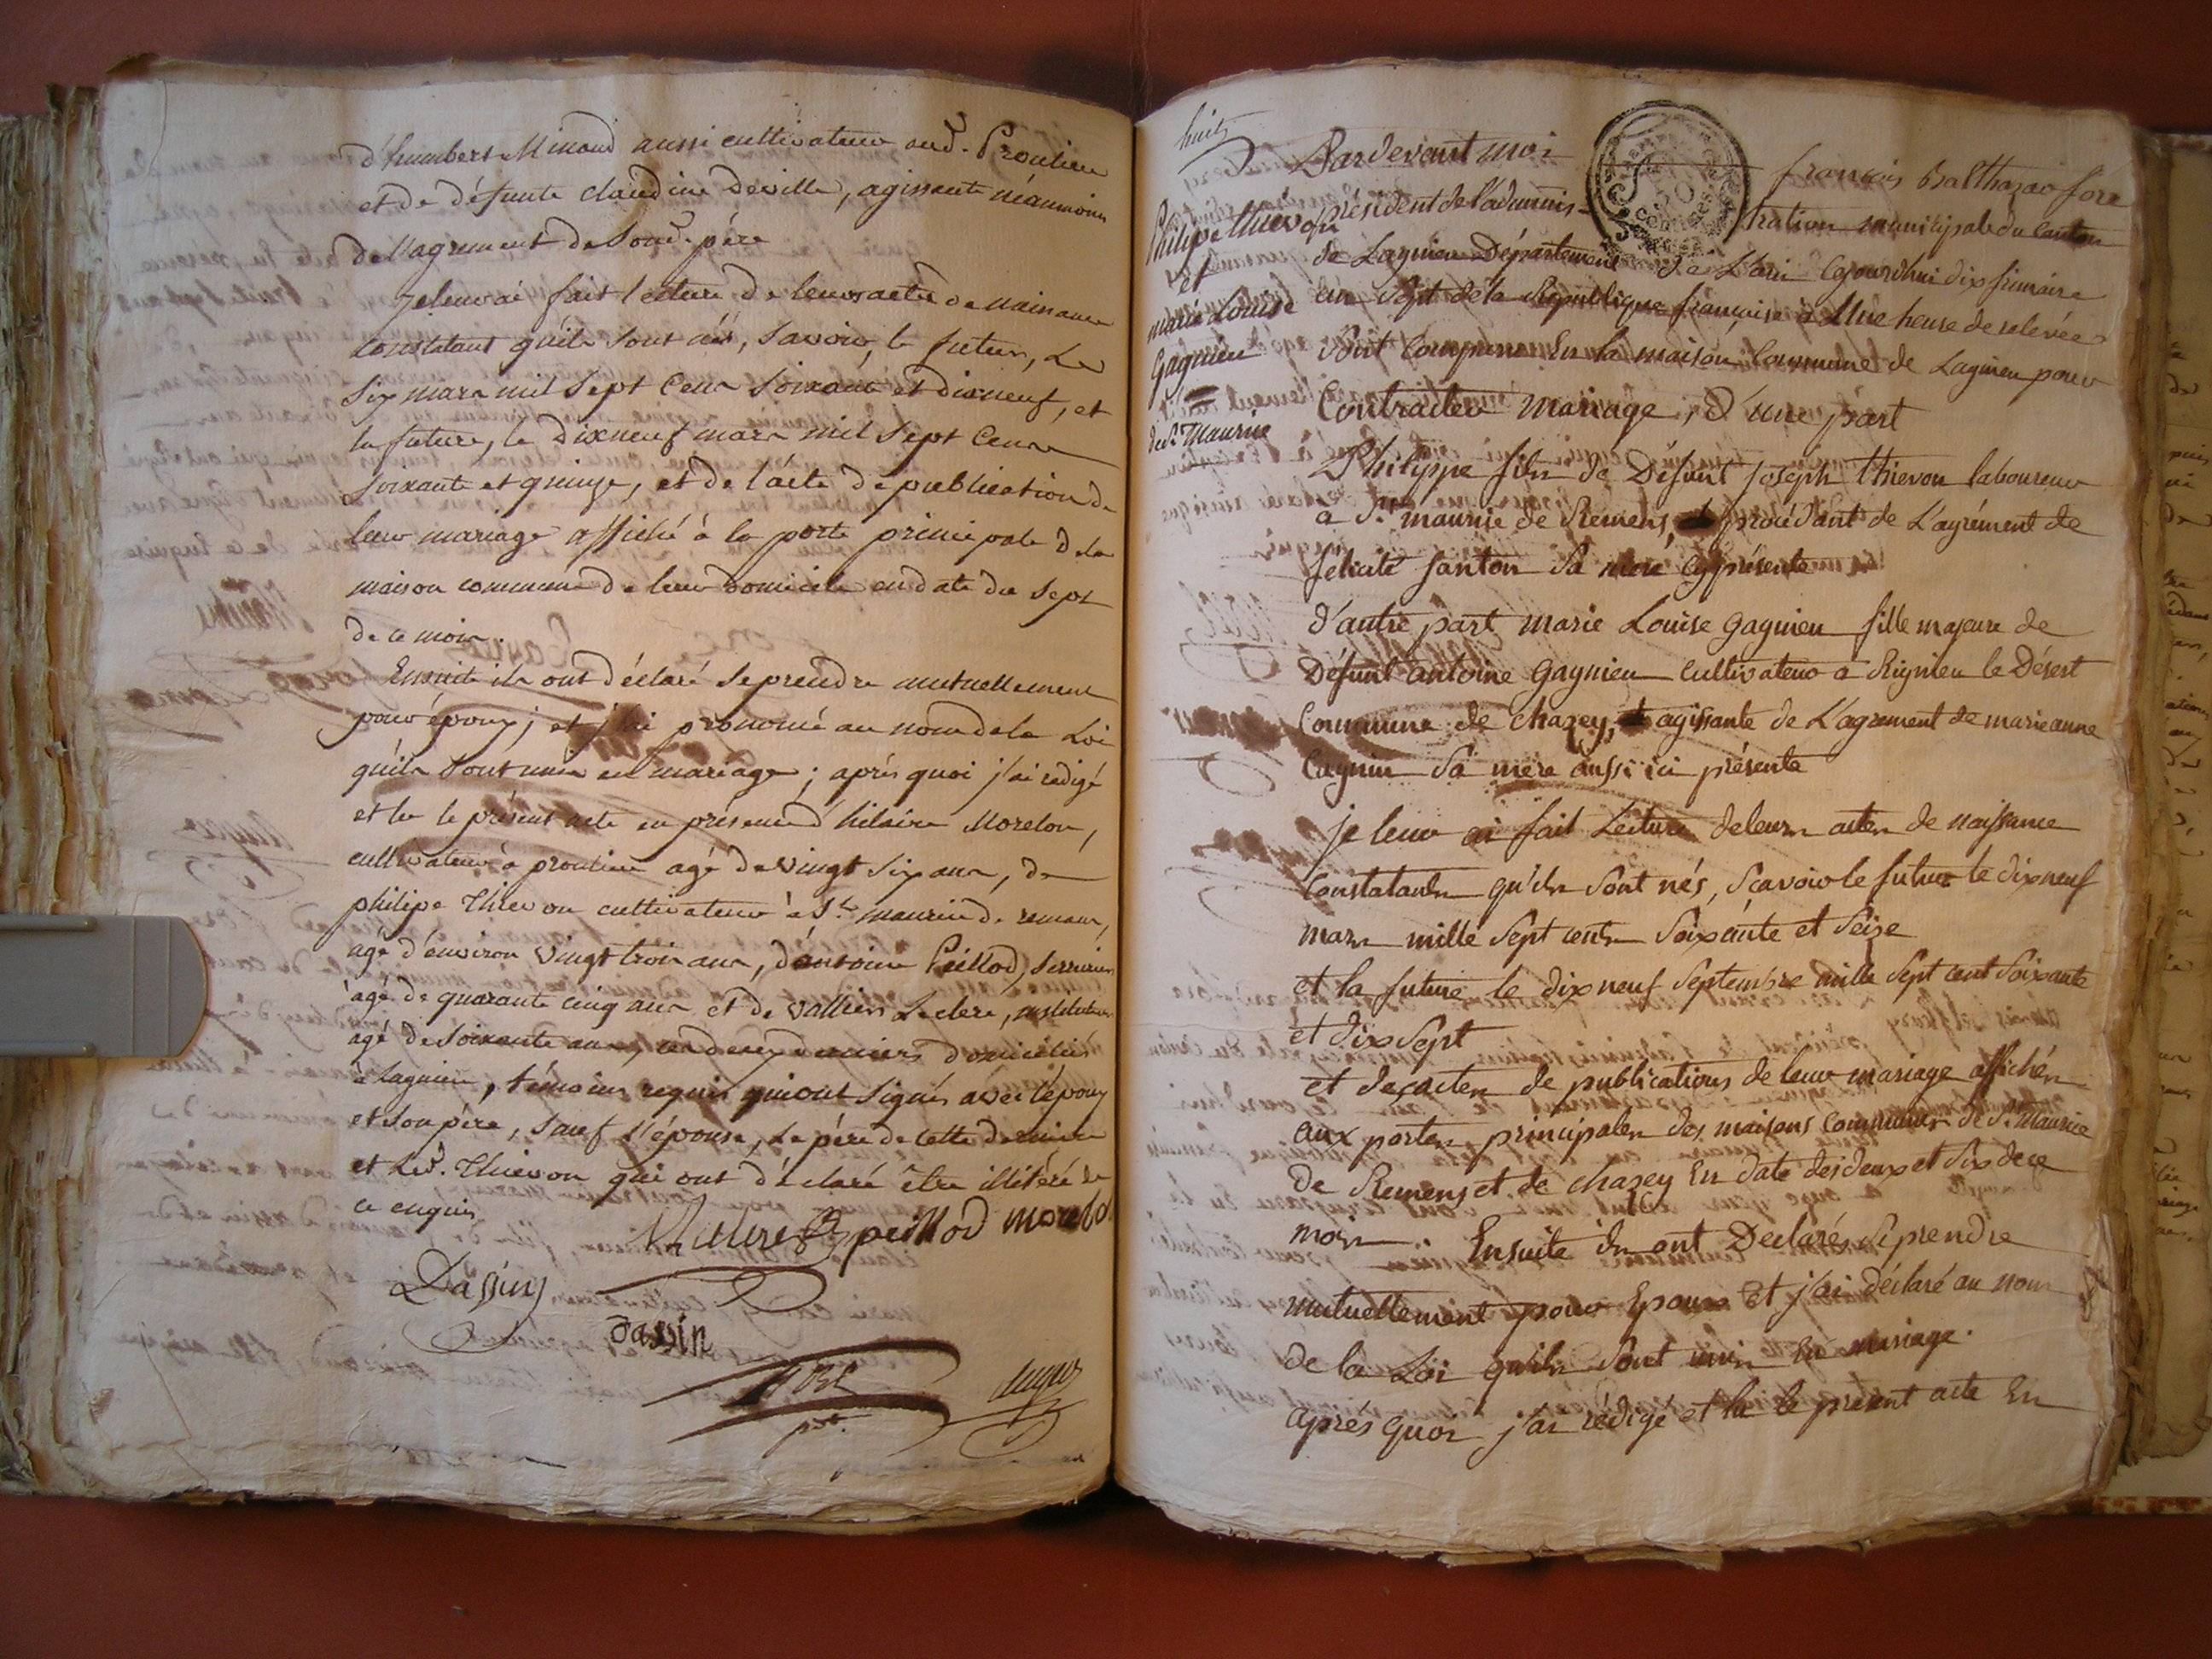 d'humbert Minaud aussi cultivateur aud. Proulieu
et de défunte claudine Deville, agissante néanmoins
de l'agrement de sond. père
Je leur ai fait lecture de leurs actes de naissance
constatant qu'ils sont nés, savoir, le futur, Le
six mars mil sept Cens soixante et dixneuf, et
la future, le dixneuf mars mil sept Cens
soixante et quinze, et de l'acte de publication de
leur mariage affiché à la porte principale de la
maison commune de leur domicile en date du sept
de ce mois.
Ensuite ils ont déclaré se prendre mutuellement
pour époux; et j'ai prononcé au nom de la Loi
qu'ils sont unis en mariage; après quoi j'ai redigé
et lu le présent acte en présence d'hilaire Morelon,
cultivateur à proulieu agé de vingt six ans, de
philipe Thievon cultivateur à St. maurice de remens,
agé d'environ vingt trois ans, d'antoine Peillod, serrurier
agé de quarante cinq ans et de vallier Leclerc, instituteur
agé de soixante ans, ces deux derniers domiciliés
à Lagnieu, témoins requis qui ont signés avec l'époux
et son père, sauf l'épouse, le père de cette dernière
et led. Thievon qui ont déclaré être illitéré de
ce enquis
peillod morelo
Dassin
Dassin
fore
pdt.
huit
Philipe Thievon
et
marie Louise
Gagnieu
de St. Maurice
Pardevant moi françois Balthazar fore
président de l'adminis-tration municipale du Canton
de Lagnieu Département de L'ain Cejourdhui dix frimaire
an sept de la République française à Une heure de relevée
Sont Comparus En la maison Commune de Lagnieu pour
Contracter mariage, d'une part
Philippe fils de Défunt joseph thievon laboureur
a St. maurice de Remens, procédant de L'agrément de
felicité fanton Sa mere cy présente
d'autre part marie Louise gagnieu fille majeure de
Défunt antoine gagnieu cultivateur a Rignieu le Désert
Commune de Chazey, agissante de L'agrement de marieanne
Cagnin Sa mere aussi ici présente
je leur ai fait Lecture de leurs actes de naissance
Constatants qu'ils Sont nés, Scavoir le futur le dix neuf
mars mille Sept cents Soixante et Seize
et la future le dix neuf Septembre mille Sept cent Soixante
et dix Sept
et des actes de publications de leur mariage affichés
aux portes principales des maisons communes de St. Maurice
de Remens et de Chazey En date des deux et Six de ce
mois Ensuite ils ont Declarés Se prendre
mutuellement pour Epoux Et j'ai déclaré au nom
de la Loi qu'ils Sont unis En mariage.
après quoi j'ai rédigé et lu le présent acte En